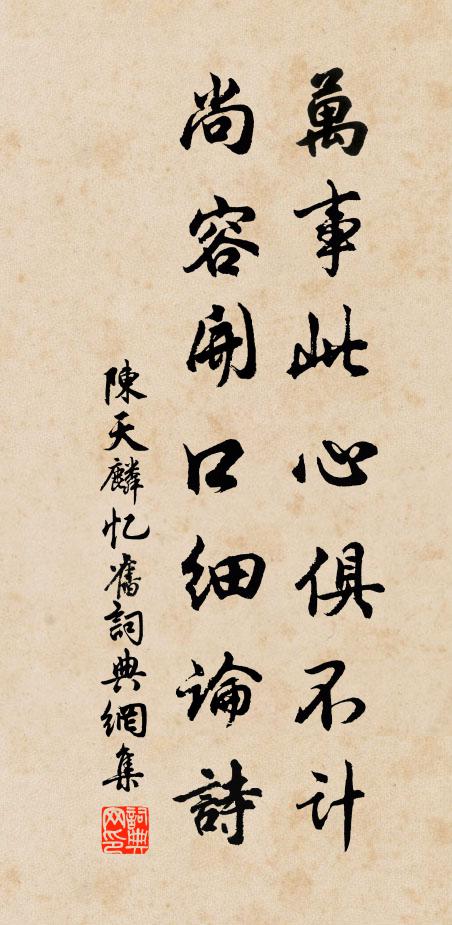 萬事此心俱不计
尚容開口細論詩
陳天麟忆舊詞典網集
詞典网印